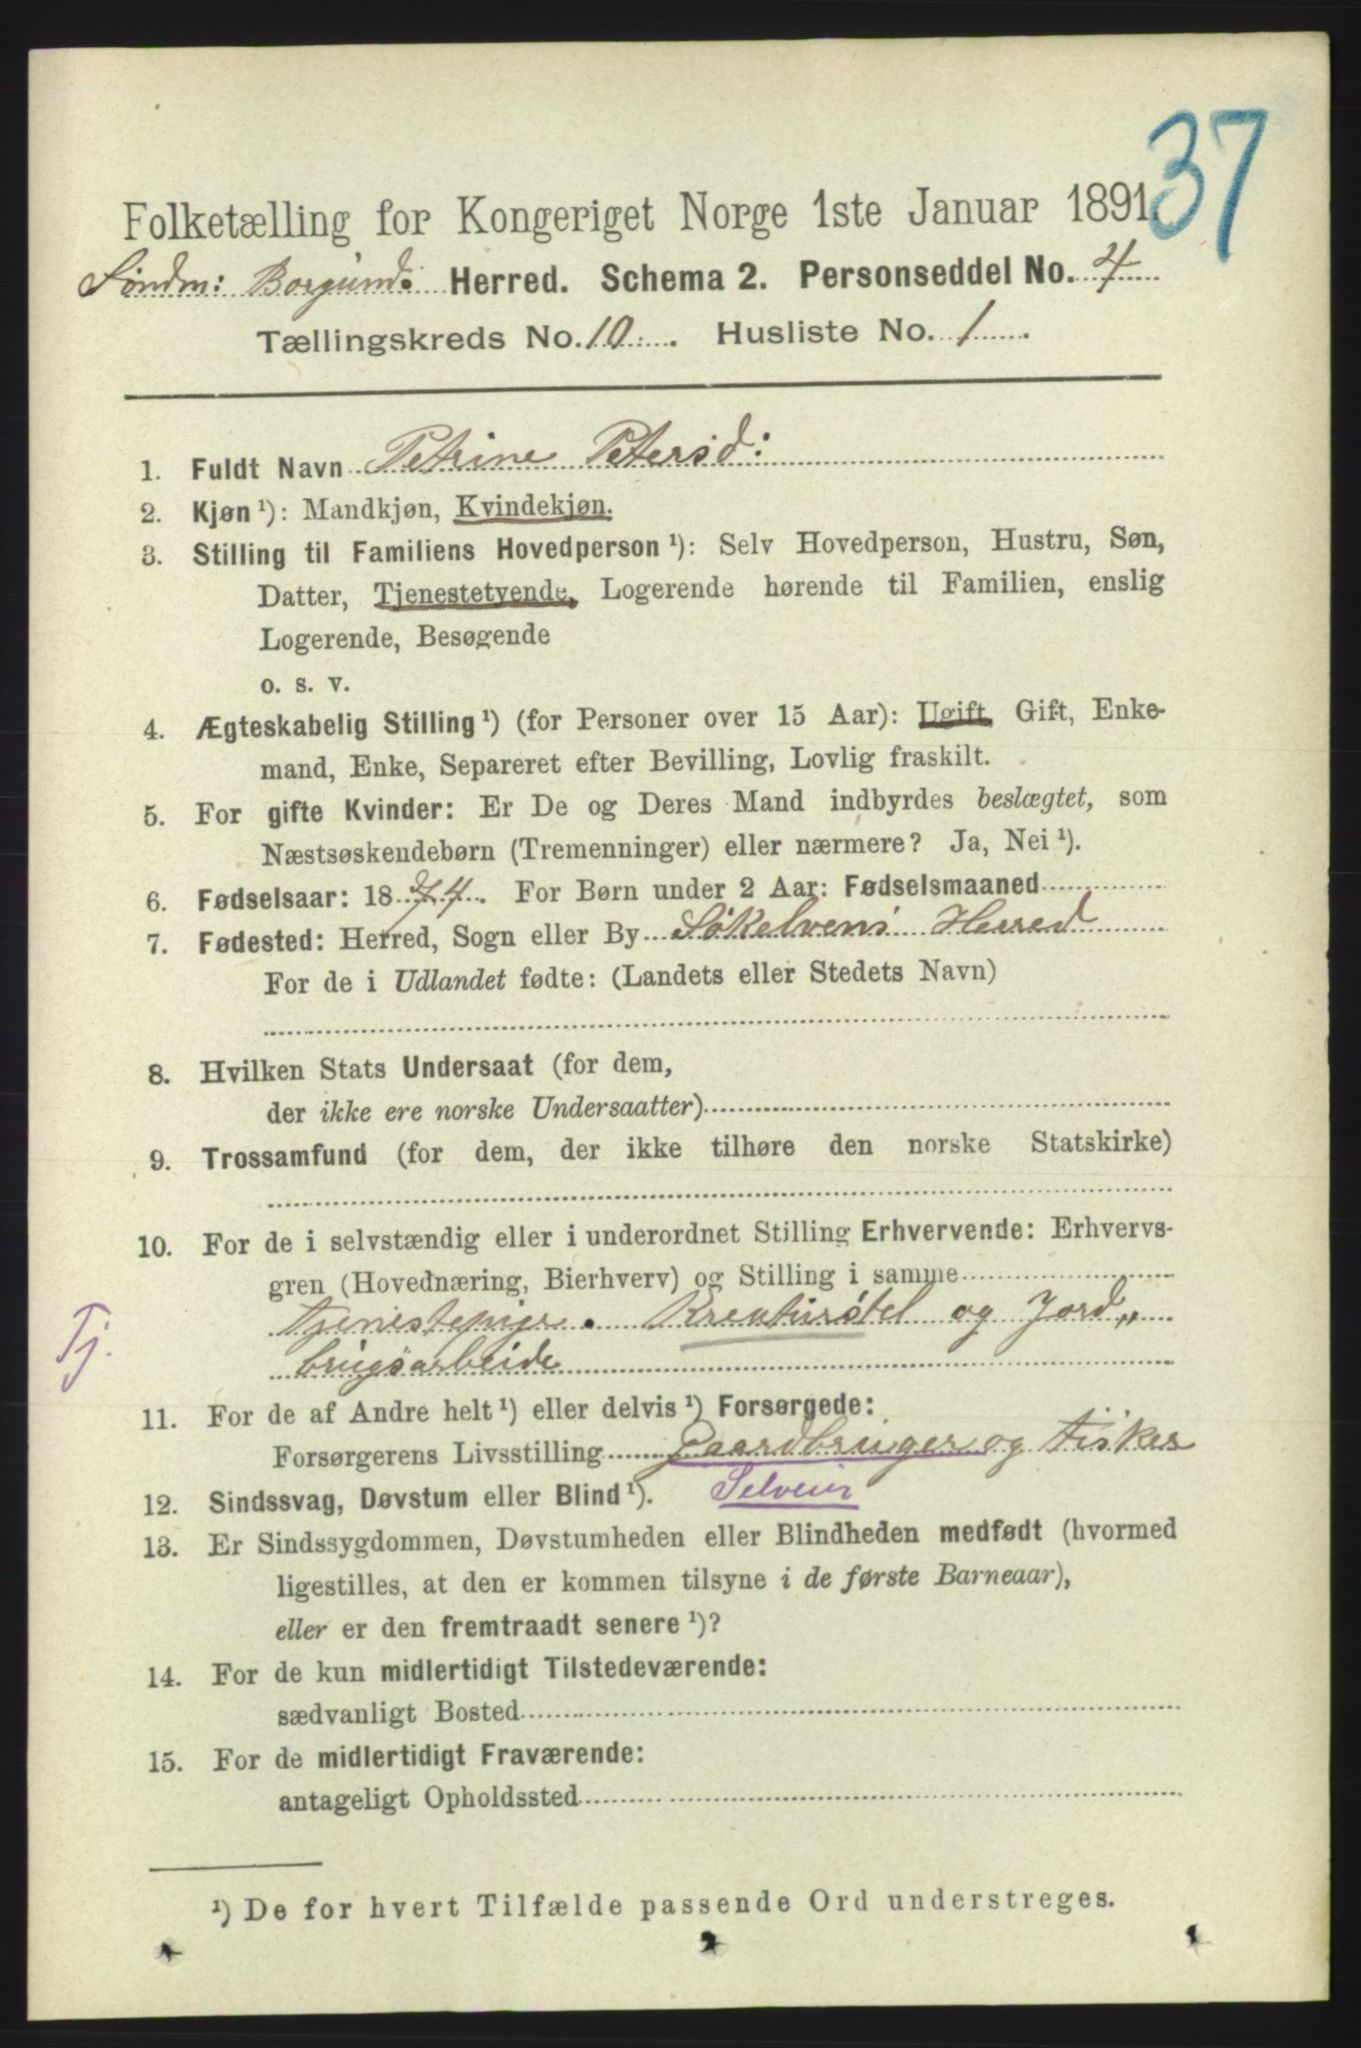 37
Folketælling for Kongeriget Norge 1ste Januar 1891.
Søndm: Borgund. Herred. Schema 2. Personseddel No. 4
Tællingskreds No. 10. Husliste No. 1.
1. Fuldt Navn Petrine Petersd:
2. Kjøn ¹): Mandkjøn, Kvindekjøn.
3. Stilling til Familiens Hovedperson ¹): Selv Hovedperson, Hustru, Søn,
Datter, Tjenestetyende, Logerende hørende til Familien, enslig
Logerende, Besøgende
o. s. v.
4. Ægteskabelig Stilling ¹) (for Personer over 15 Aar): Ugift, Gift, Enke-
mand, Enke, Separeret efter Bevilling, Lovlig fraskilt.
5. For gifte Kvinder: Er De og Deres Mand indbyrdes beslægtet, som
Næstsøskendebørn (Tremenninger) eller nærmere? Ja, Nei ¹).
6. Fødselsaar: 1874. For Børn under 2 Aar: Fødselsmaaned
7. Fødested: Herred, Sogn eller By Søkelvens Herred
For de i Udlandet fødte: (Landets eller Stedets Navn)
8. Hvilken Stats Undersaat (for dem,
der ikke ere norske Undersaatter)
9. Trossamfund (for dem, der ikke tilhøre den norske Statskirke)
10. For de i selvstændig eller i underordnet Stilling Erhvervende: Erhvervs-
gren (Hovednæring, Bierhverv) og Stilling i samme
Tjenistepige. Kreaturstel og Jord„
Tj. brugsarbeide
11. For de af Andre helt ¹) eller delvis ¹) Forsørgede:
Forsørgerens Livsstilling Gaardbruger og Fisker
12. Sindssvag, Døvstum eller Blind ¹). Selveier
13. Er Sindssygdommen, Døvstumheden eller Blindheden medfødt (hvormed
ligestilles, at den er kommen tilsyne i de første Barneaar),
eller er den fremtraadt senere ¹)?
14. For de kun midlertidigt Tilstedeværende:
sædvanligt Bosted
15. For de midlertidigt Fraværende:
antageligt Opholdssted
¹) De for hvert Tilfælde passende Ord understreges.